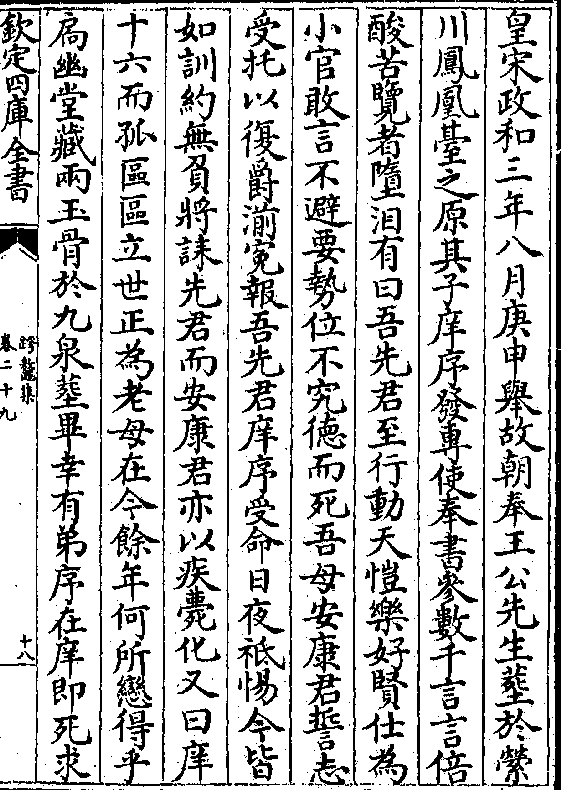 皇宋政和三年八月庚申舉故朝奉王公先生塟於縈
川鳳凰臺之原其子庠序發專使奉書叅數千言言倍
酸苦覽者墮泪有曰吾先君至行動天愷樂好賢仕為
小官敢言不避要勢位不究德而死吾母安康君誓志
受托以復爵湔寃報吾先君庠序受命日夜祗惕今皆
如訓約無負將誄先君而安康君亦以疾薨化又曰庠
十六而孤區區立世正為老母在今餘年何所戀得乎
扄幽堂藏兩玉骨於九泉塟畢幸有弟序在庠即死求
欽定四庫全書
跨鼇集
卷二十九
十八